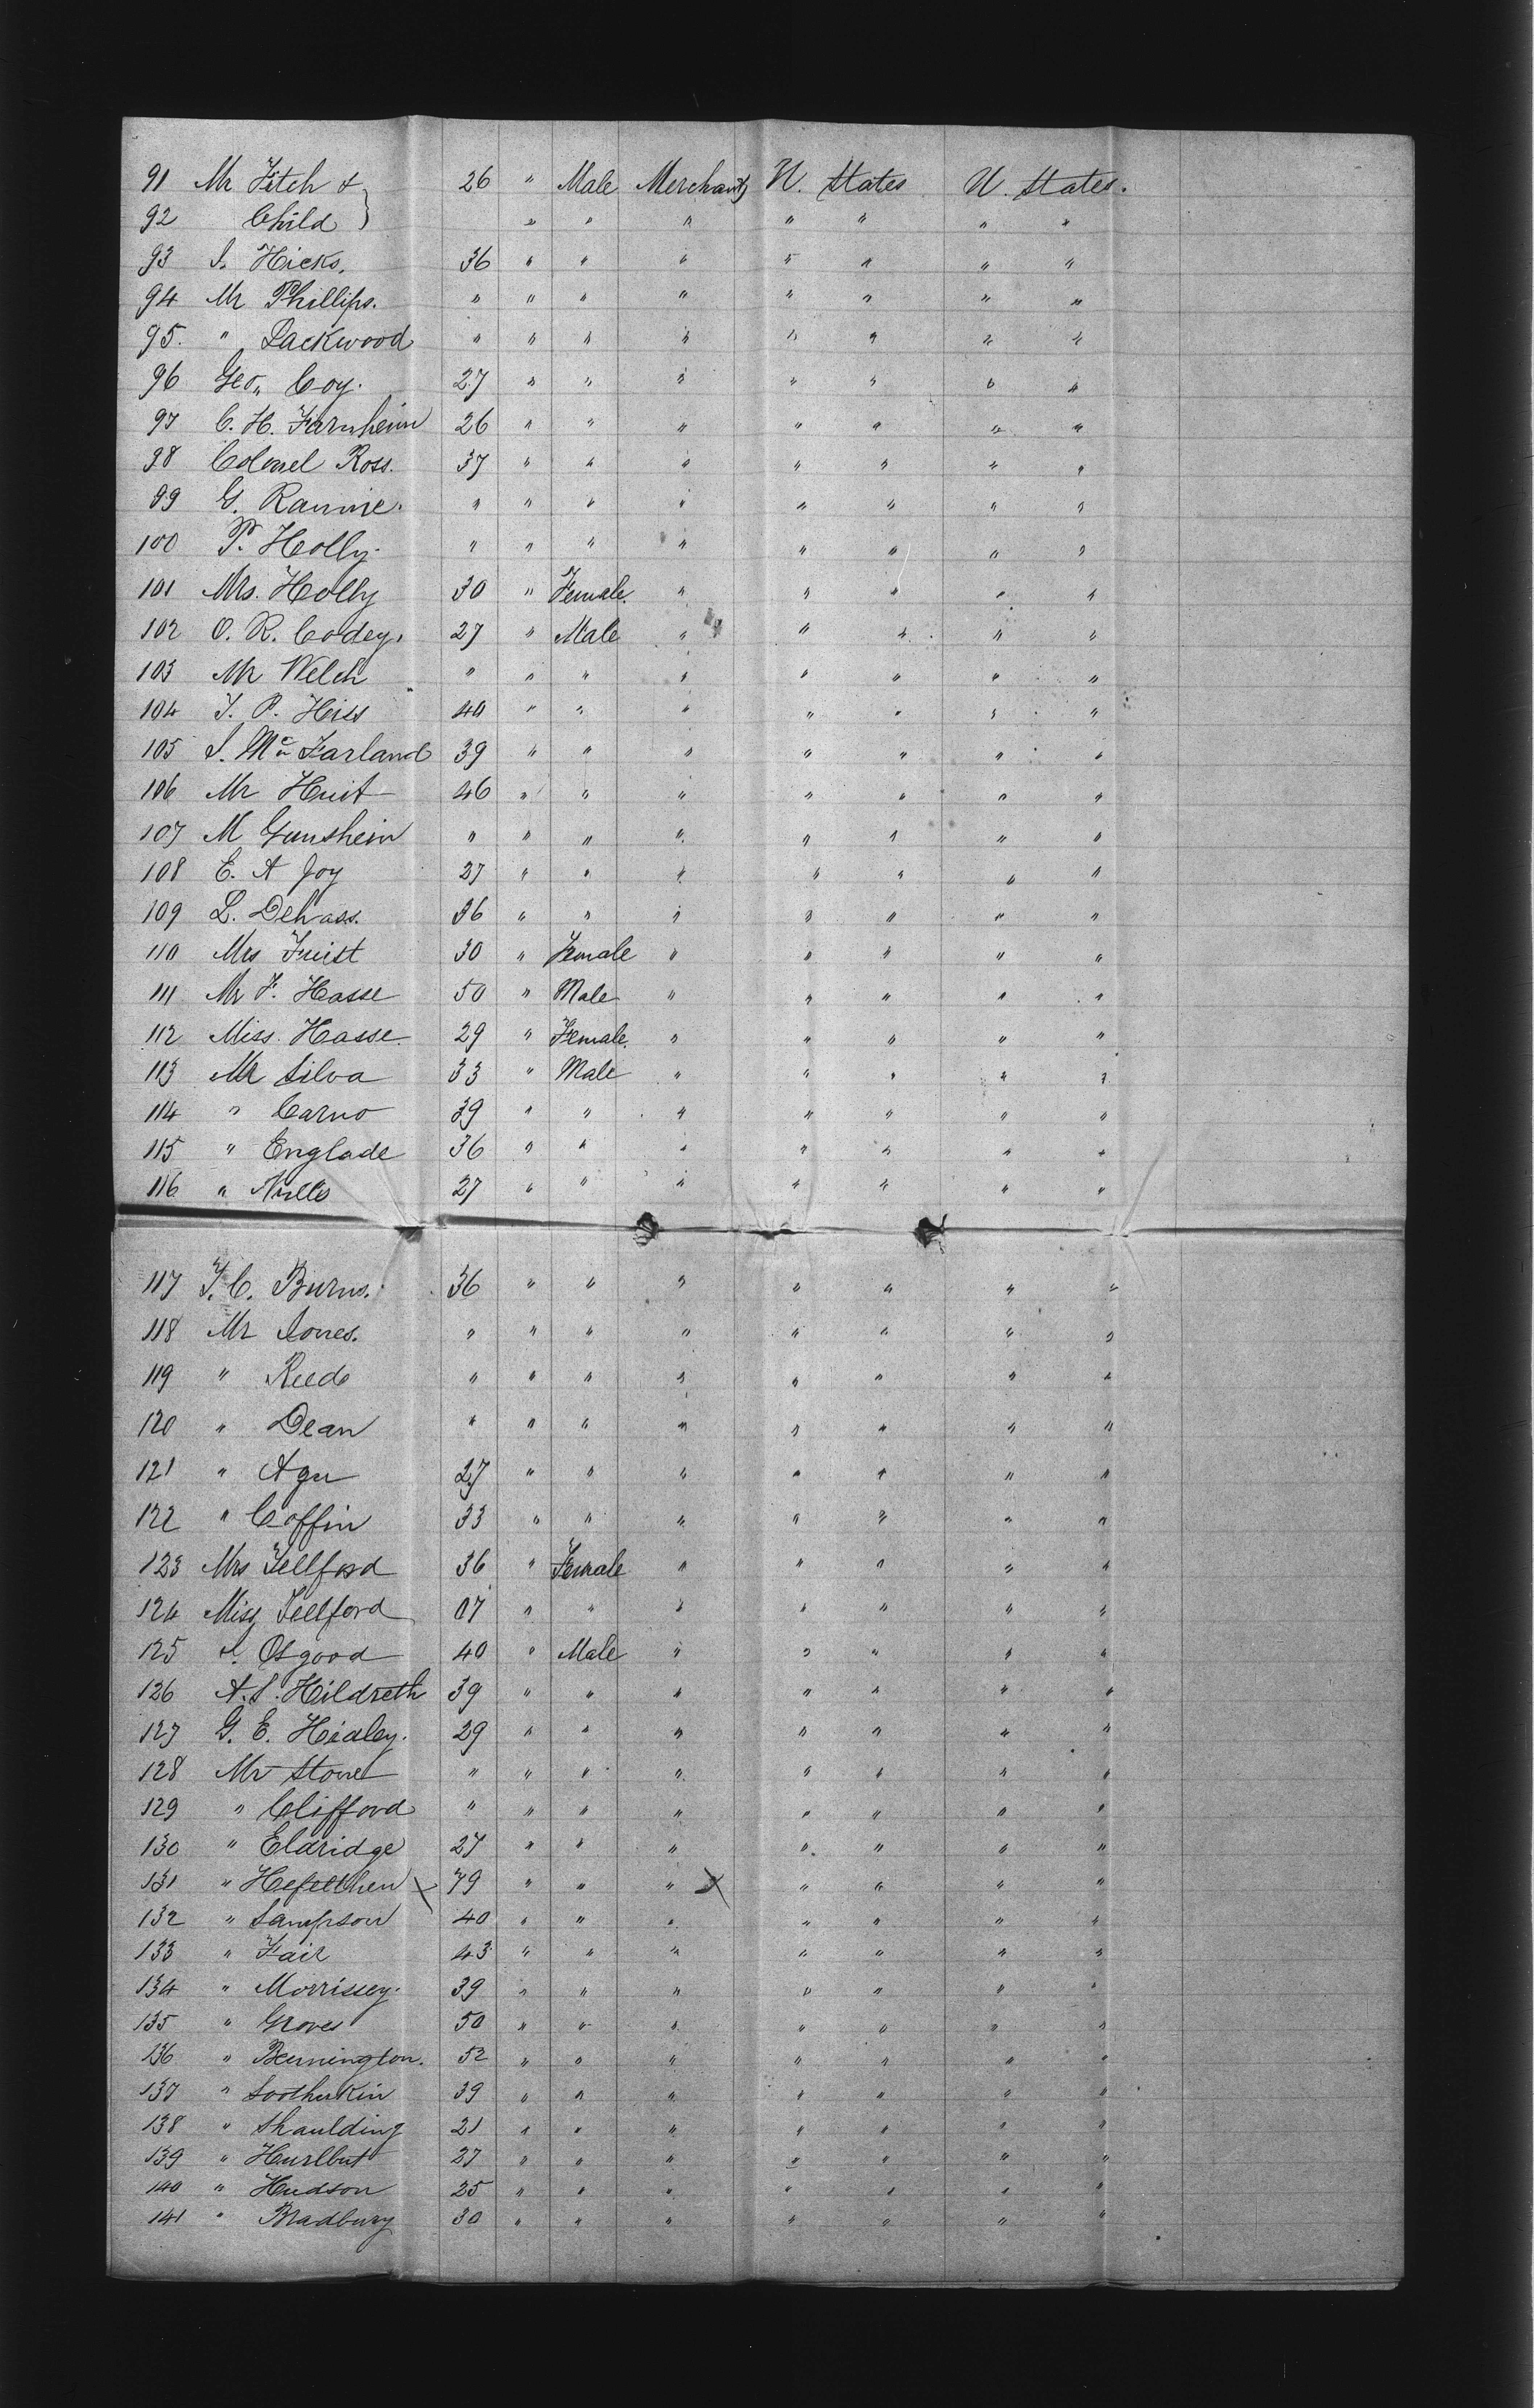 91 Mr Fitch & } 26 " Male Merchant U. States U. States.
92 Child } " " " " " " "
93 S. Hicks. 36 " " " " " " "
94 Mr Phillips. " " " " " " " "
95. " Lackwood " " " " " " " "
96 Geo. Coy. 27 " " " " " " "
97 C. H. Farnheim 26 " " " " " " "
98 Colonel Ross. 37 " " " " " " "
99 G. Rannie. " " " " " " " "
100 P. Holly. " " " " " " " "
101 Mrs. Holly 30 " Female. " " " " "
102 O. R. Codey. 27 " Male " " " " "
103 Mr Welch " " " " " " " "
104 J. P. Hiss 40 " " " " " " "
105 S. Mc Farland 39 " " " " " " "
106 Mr Huit 46 " " " " " " "
107 M Gunshein " " " " " " " "
108 E. A Joy 27 " " " " " " "
109 L. Dehass. 36 " " " " " " "
110 Mrs Fuist 30 " Female " " " " "
111 Mr F. Hasse 50 " Male " " " " "
112 Miss. Hasse. 29 " Female. " " " " "
113 Mr Silva 33 " Male " " " " "
114 " Carno 39 " " " " " " "
115 " Englade 36 " " " " " " "
116 " 27 " " " " " " "
117 J. C. Burns. 36 " " " " " " "
118 Mr Jones. " " " " " " " "
119 " Reed " " " " " " " "
120 " Dean " " " " " " " "
121 " Agu 27 " " " " " " "
122 " Coffin 33 " " " " " " "
123 Mrs Tellford 36 " Female " " " " "
124 Miss Tellford 07 " " " " " " "
125 S. Osgood 40 " Male " " " " "
126 A. S. Hildreth 39 " " " " " " "
127 G. E. Hidley. 29 " " " " " " "
128 Mr Stone " " " " " " " "
129 " Clifford " " " " " " " "
130 " Eldridge 27 " " " " " " "
131 " Hefetthen X 79 " " " X " " " "
132 " Sampson 40 " " " " " " "
133 " Fair 43 " " " " " " "
134 " Morrissey. 39 " " " " " " "
135 " Groves 50 " " " " " " "
136 " Bennington. 52 " " " " " " "
137 " Soothukin 39 " " " " " " "
138 " Shaulding 21 " " " " " " "
139 " Hurlbut 27 " " " " " " "
140 " Hudson 25 " " " " " " "
141 " Bradbury 30 " " " " " " "